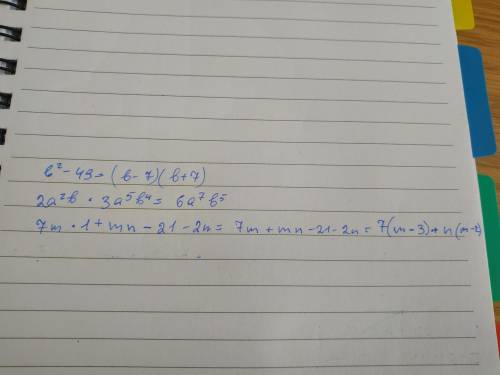 b² - 49 = (b - 7)(b + 7)
2a²b · 3a⁵b⁴ = 6a⁷b⁵
7m · 1 + mn - 21 - 2n = 7m + mn - 21 - 2n = 7(m - 3) + n(m - 2)